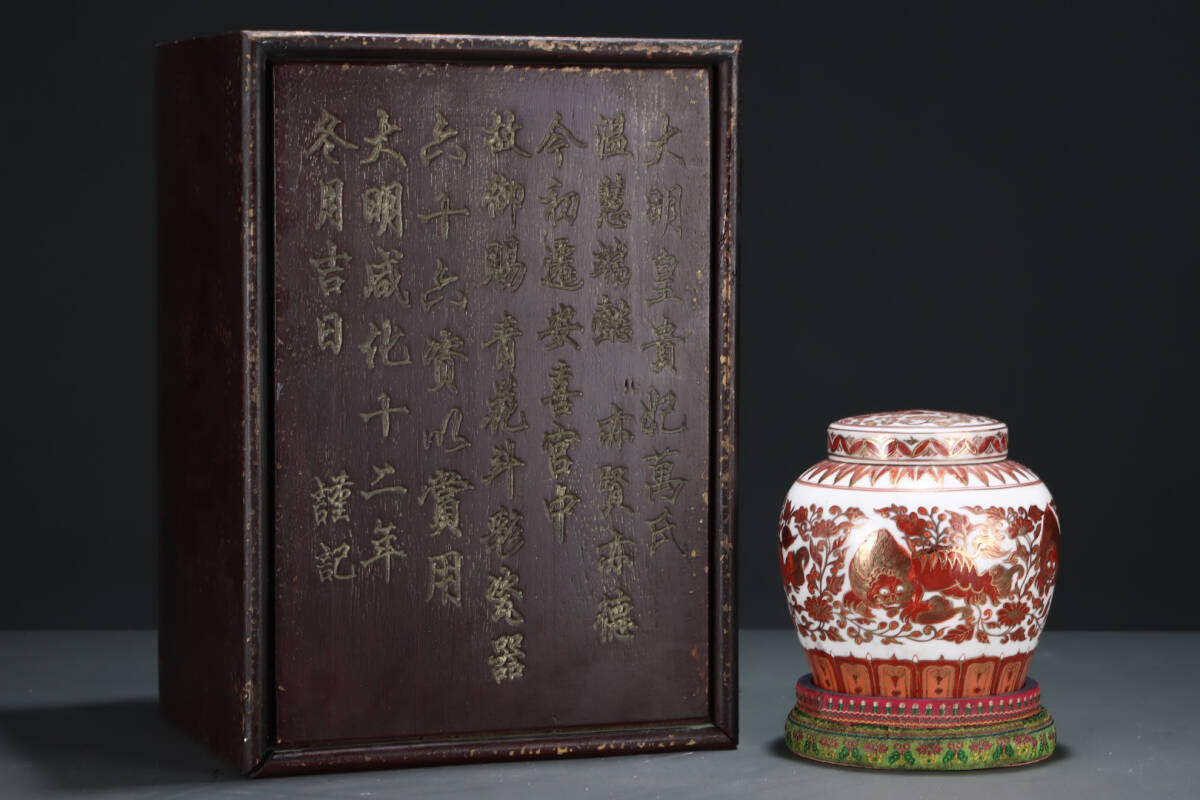 大明皇貴妃萬氏
溫慧端懿亦賢亦德
今初遷安喜宮中
故御賜青花斗彩瓷器
六十六賚以賞用
大明成化十二年
冬月吉日 謹記